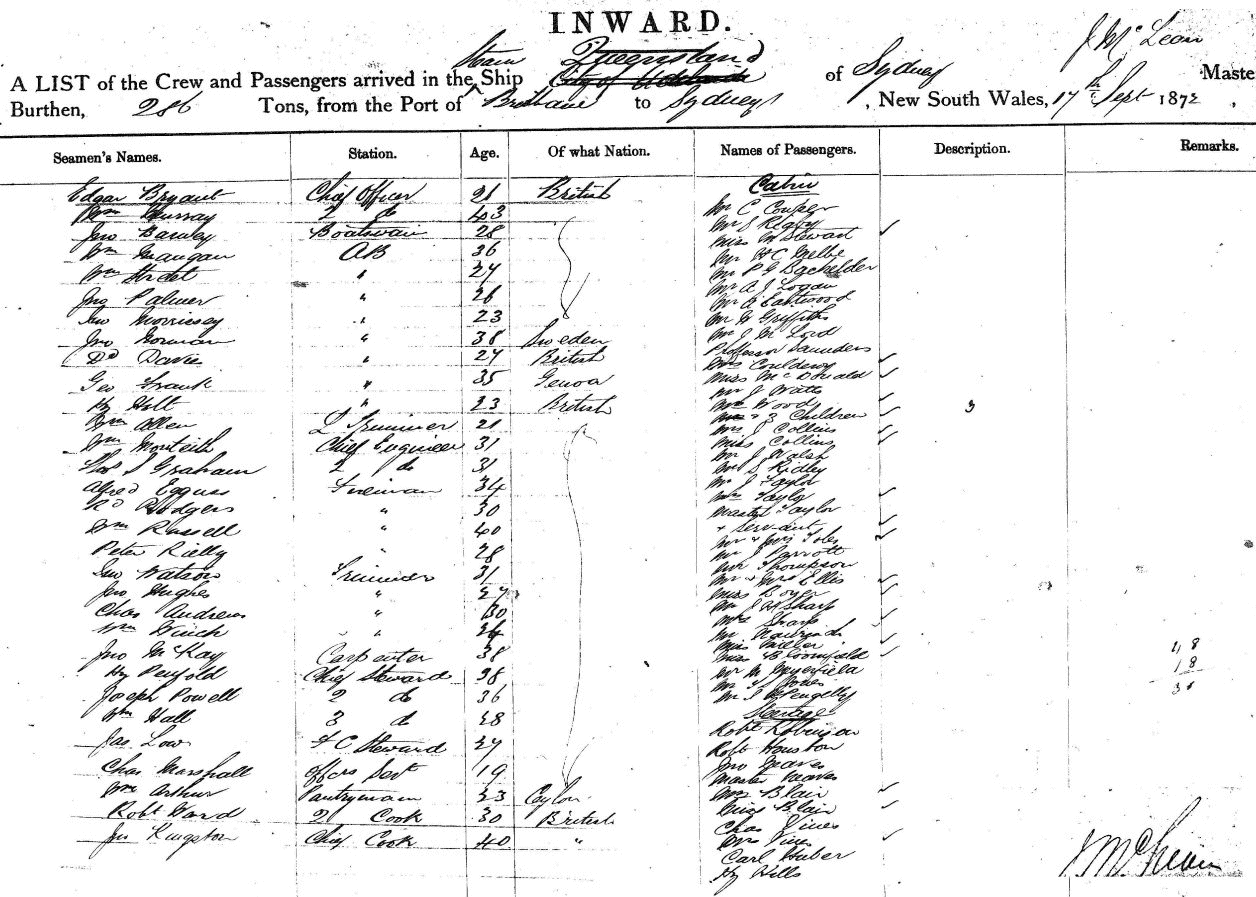 INWARD.
J McLean
Steam Queensland
A LIST of the Crew and Passengers arrived in the Ship City of Adelaide of Sydney Maste
Burthen, 286 Tons, from the Port of Brisbane to Sydney, New South Wales, 17th Sept 1872,
Seamen's Names. Station. Age. Of what Nation. Names of Passengers. Description. Remarks.
Cabin
Edgar Bryant Chief Officer 21 British
Mr C Cowper
Wm Murray 2 do 43
Mr J Rigby
Jno Barney Boatswain 28
Miss M Stewart
Wm Mangan AB 36
Mr H C Melbe
Wm Strdet " 27
Mr P G Bachelder
Mr A J Logan
Jno Palmer " 26
Mr E Eastwood
Jno Morrissey " 23
Mr W Griffiths
Mr J M Lord
Jno Norman " 38 Sweden
Professor Saunders
Dd Davis " 27 British
Mrs Couldery
Miss McDonald
Geo Frank " 35 Genoa
Mr J Watts
Hy Holt " 23 British
Mrs Wood
+ 3 Children 3
Wm Allen L Trimmer 21
Mrs J Collins
Miss Collins
Wm Monteith Chief Engineer 31
Mr J Walsh
Thos S Graham 2 do 31
Mr S Ridley
Mr J Taylor
Alfred Egguss Fireman 34
Mrs Taylor
Rd Rodgers " 30
Master Taylor
+ Servant
Wm Russell " 40
Mr + Mrs Foles
Peter Rielly " 28
Mr J Parrott
Mr Thompson
Jno Watson Trimmer 31
Mr + Mrs Ellis
Jno Hughes " 27
Miss Boyer
Mr J A Sharp
Chas Andrews " 30
Mrs Sharp
Wm Winch " 24
Miss Miller
Jno McKay Carpenter 38
Miss Bloomfield
18
Hy Penfold Chief Steward 28
18
Mr Jones
Joseph Powell 2 do 36
Mr J Pengelly
Wm Hall 3 do 28
Steerage
Robt Robinson
Jas Low F C Steward 27
Robt Houston
Jno Meaves
Chas Marshall Offcrs Sevt 19
Master Meaves
Wm Arthur Pantryman 23 Ceylon
Mrs Blair
Miss Blair
Robt Ward 2 Cook 30 British
Chas Vines
Jno Kingston Chief Cook 40 "
Mrs Vines
Carl Huber
Hy Hills
J McLean